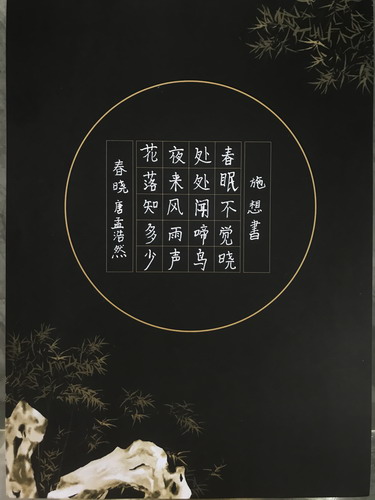 施想書
春眠不觉晓
处处闻啼鸟
夜来风雨声
花落知多少
春晓 唐孟浩然